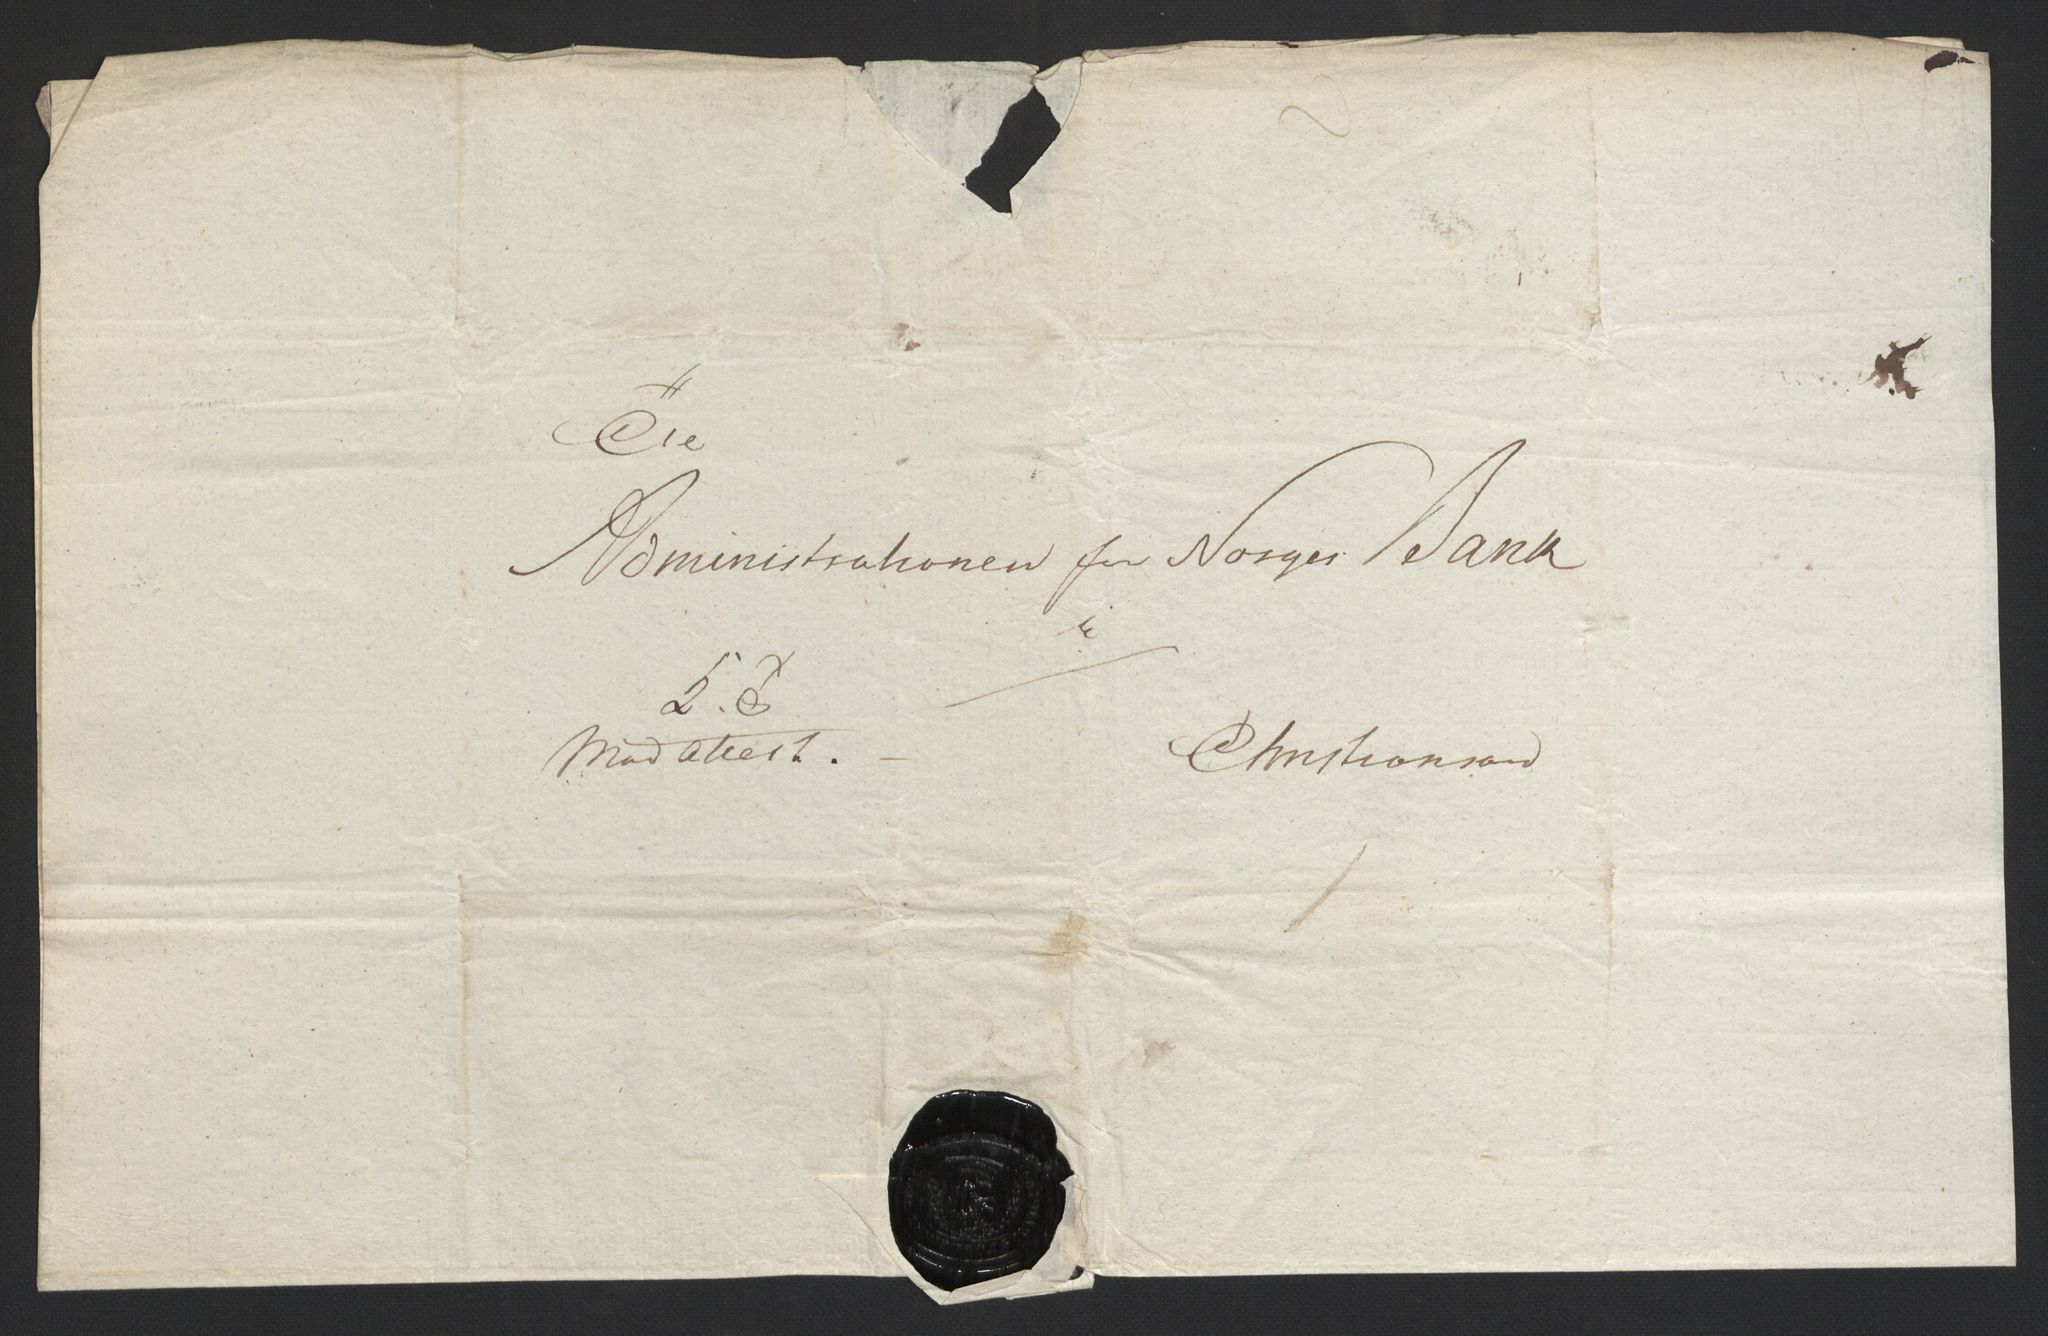 Til
Administrationen for Norges Bank
i
K. T.
Mod Attest. —
Christiansand